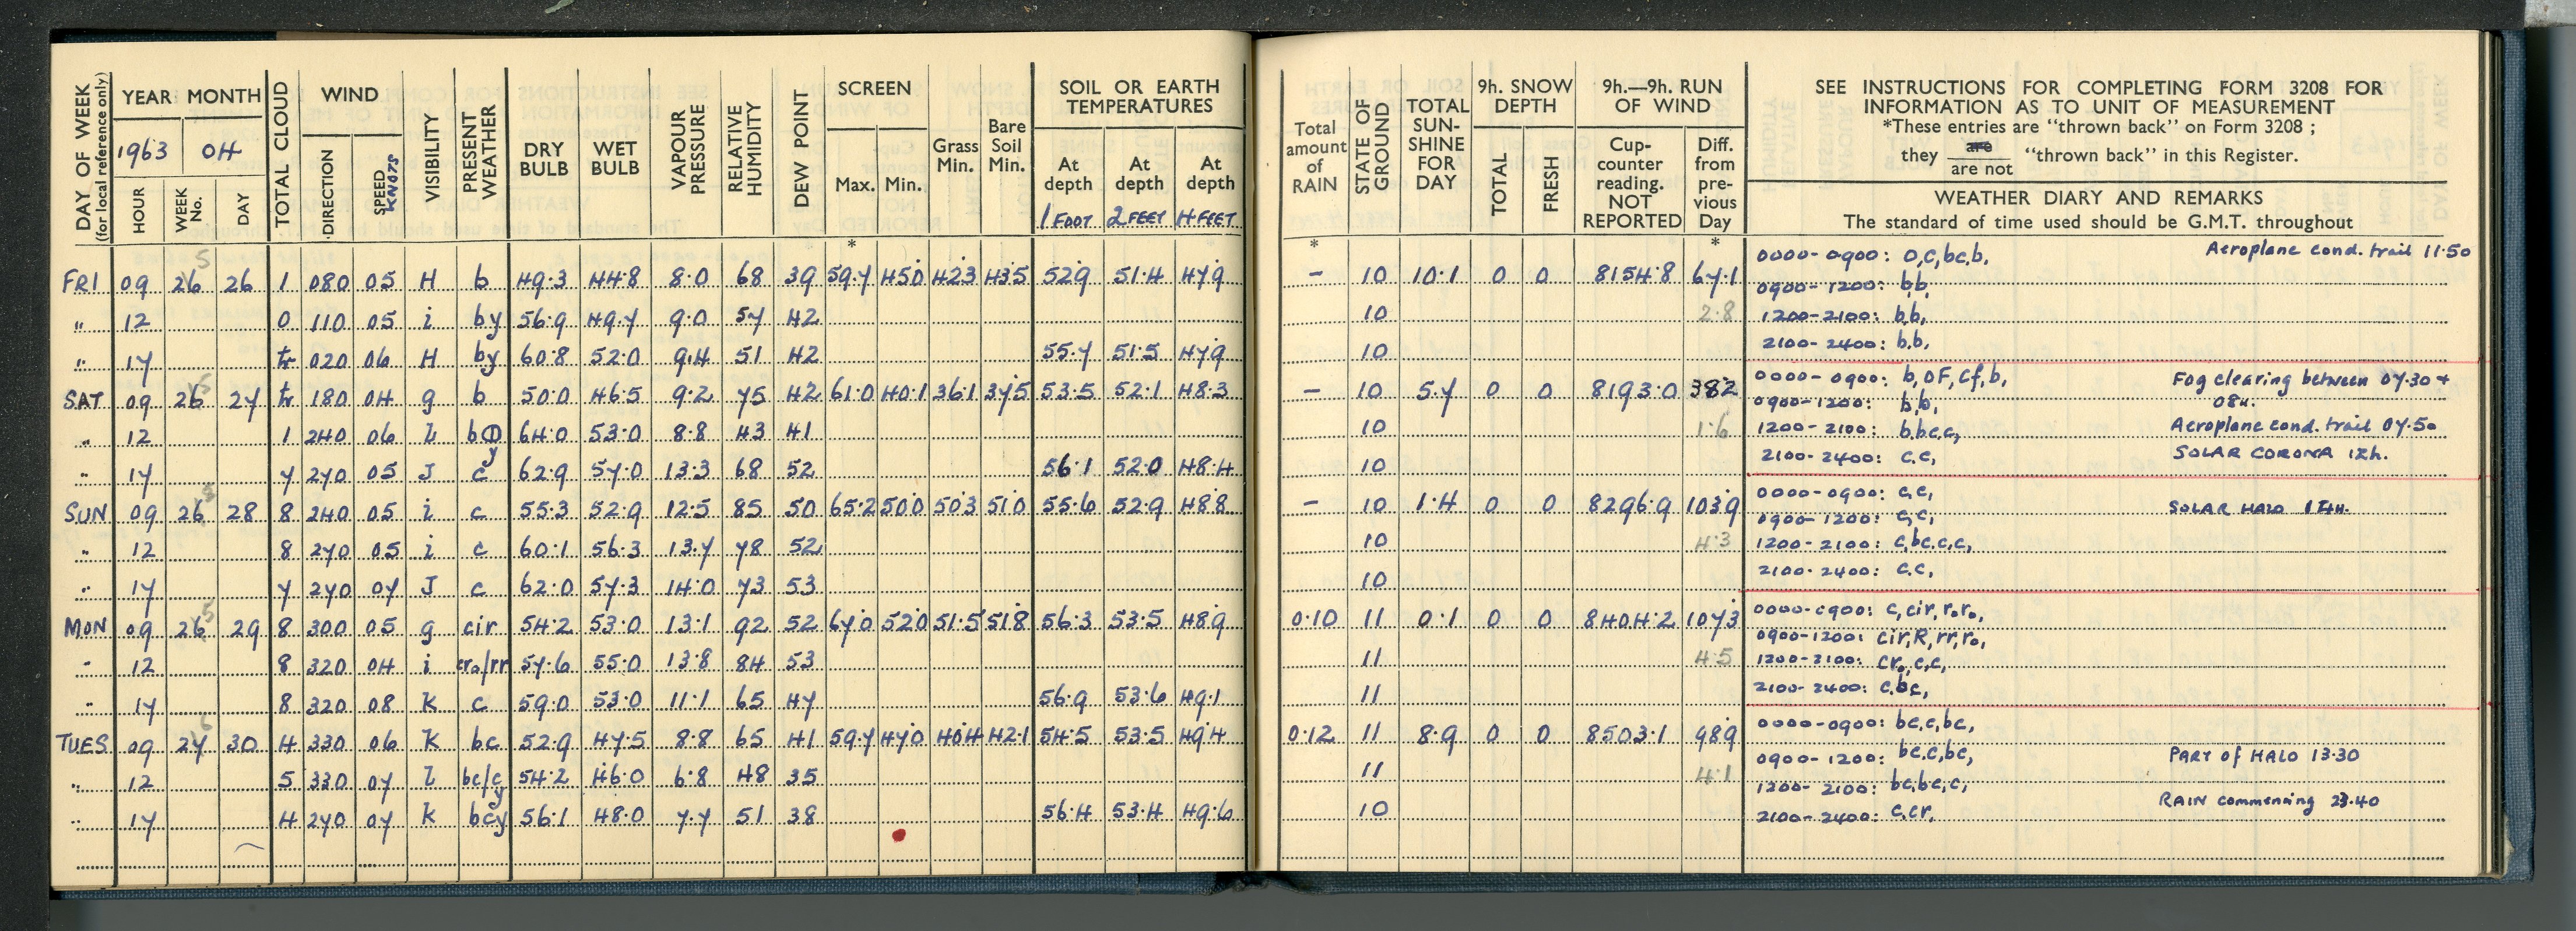 DAY OF WEEK
(for local reference only)
YEAR MONTH
1963 04
HOUR WEEK No. DAY
TOTAL CLOUD
WIND
DIRECTION SPEED KNOTS
VISIBILITY
PRESENT WEATHER
DRY BULB
WET BULB
VAPOUR PRESSURE
RELATIVE HUMIDITY
DEW POINT
SCREEN
Max. Min.
Grass Min.
Bare Soil Min.
SOIL OR EARTH TEMPERATURES
At depth At depth At depth
1 FOOT 2 FEET 4 FEET
*
5
FRI 09 26 26 1 080 05 H b 49.3 44.8 8.0 68 39 59.7 45.0 42.3 43.5 52.9 51.4 47.9
" 12 0 110 05 i by 56.9 49.7 9.0 57 42
" 17 tr 020 06 H by 60.8 52.0 9.4 51 42 55.7 51.5 47.9
5
SAT 09 26 27 tr 180 04 g b 50.0 46.5 9.2 75 42 61.0 40.1 36.1 37.5 53.5 52.1 48.3
" 12 1 240 06 l b⦶y 64.0 53.0 8.8 43 41
" 17 7 270 05 J c 62.9 57.0 13.3 68 52 56.1 52.0 48.4
5
SUN 09 26 28 8 240 05 i c 55.3 52.9 12.5 85 50 65.2 50.0 50.3 51.0 55.6 52.9 48.8
" 12 8 270 05 i c 60.1 56.3 13.7 78 52
" 17 7 270 07 J c 62.0 57.3 14.0 73 53
5
MON 09 26 29 8 300 05 g cir 54.2 53.0 13.1 92 52 67.0 52.0 51.5 51.8 56.3 53.5 48.9
" 12 8 320 04 i cr₀/rr 57.6 55.0 13.8 84 53
" 17 8 320 08 K c 59.0 53.0 11.1 65 47 56.9 53.6 49.1
6
TUES 09 27 30 4 330 06 K bc 52.9 47.5 8.8 65 41 59.7 47.0 40.4 42.1 54.5 53.5 49.4
" 12 5 330 07 l bc/cy 54.2 46.0 6.8 48 35
" 17 4 270 07 K bcy 56.1 48.0 7.7 51 38 56.4 53.4 49.6
Total amount of RAIN
STATE OF GROUND
TOTAL SUN-SHINE FOR DAY
9h. SNOW DEPTH
TOTAL FRESH
9h.—9h. RUN OF WIND
Cup-counter reading. NOT REPORTED
Diff. from pre-vious Day
SEE INSTRUCTIONS FOR COMPLETING FORM 3208 FOR
INFORMATION AS TO UNIT OF MEASUREMENT
*These entries are "thrown back" on Form 3208 ;
they are / are not "thrown back" in this Register.
WEATHER DIARY AND REMARKS
The standard of time used should be G.M.T. throughout
* *
0000-0900: O,c,bc,b, Aeroplane cond. trail 11.50
– 10 10.1 0 0 8154.8 67.1
0900-1200: b,b,
10 2.8 1200-2100: b,b,
10 2100-2400: b,b,
0000-0900: b,OF,Cf,b, Fog clearing between 07.30 +
– 10 5.7 0 0 8193.0 38.2 0900-1200: b,b, 08h.
10 1.6 1200-2100: b,bc,c, Aeroplane cond. trail 07.50
10 2100-2400: c,c, SOLAR CORONA 12h.
0000-0900: c,c,
– 10 1.4 0 0 8296.9 103.9 0900-1200: c,c, SOLAR HALO 17h.
10 4.3 1200-2100: c,bc,c,c,
10 2100-2400: c,c,
0000-0900: c,cir,r₀r₀,
0.10 11 0.1 0 0 8404.2 107.3 0900-1200: cir,R,rr,r₀,
11 4.5 1200-2100: cr₀,c,c,
11 2100-2400: c,bc,
0000-0900: bc,c,bc,
0.12 11 8.9 0 0 8503.1 98.9 0900-1200: bc,c,bc, PART of HALO 13.30
11 4.1 1200-2100: bc,bc,c,
10 RAIN commencing 23.40
2100-2400: c,cr,